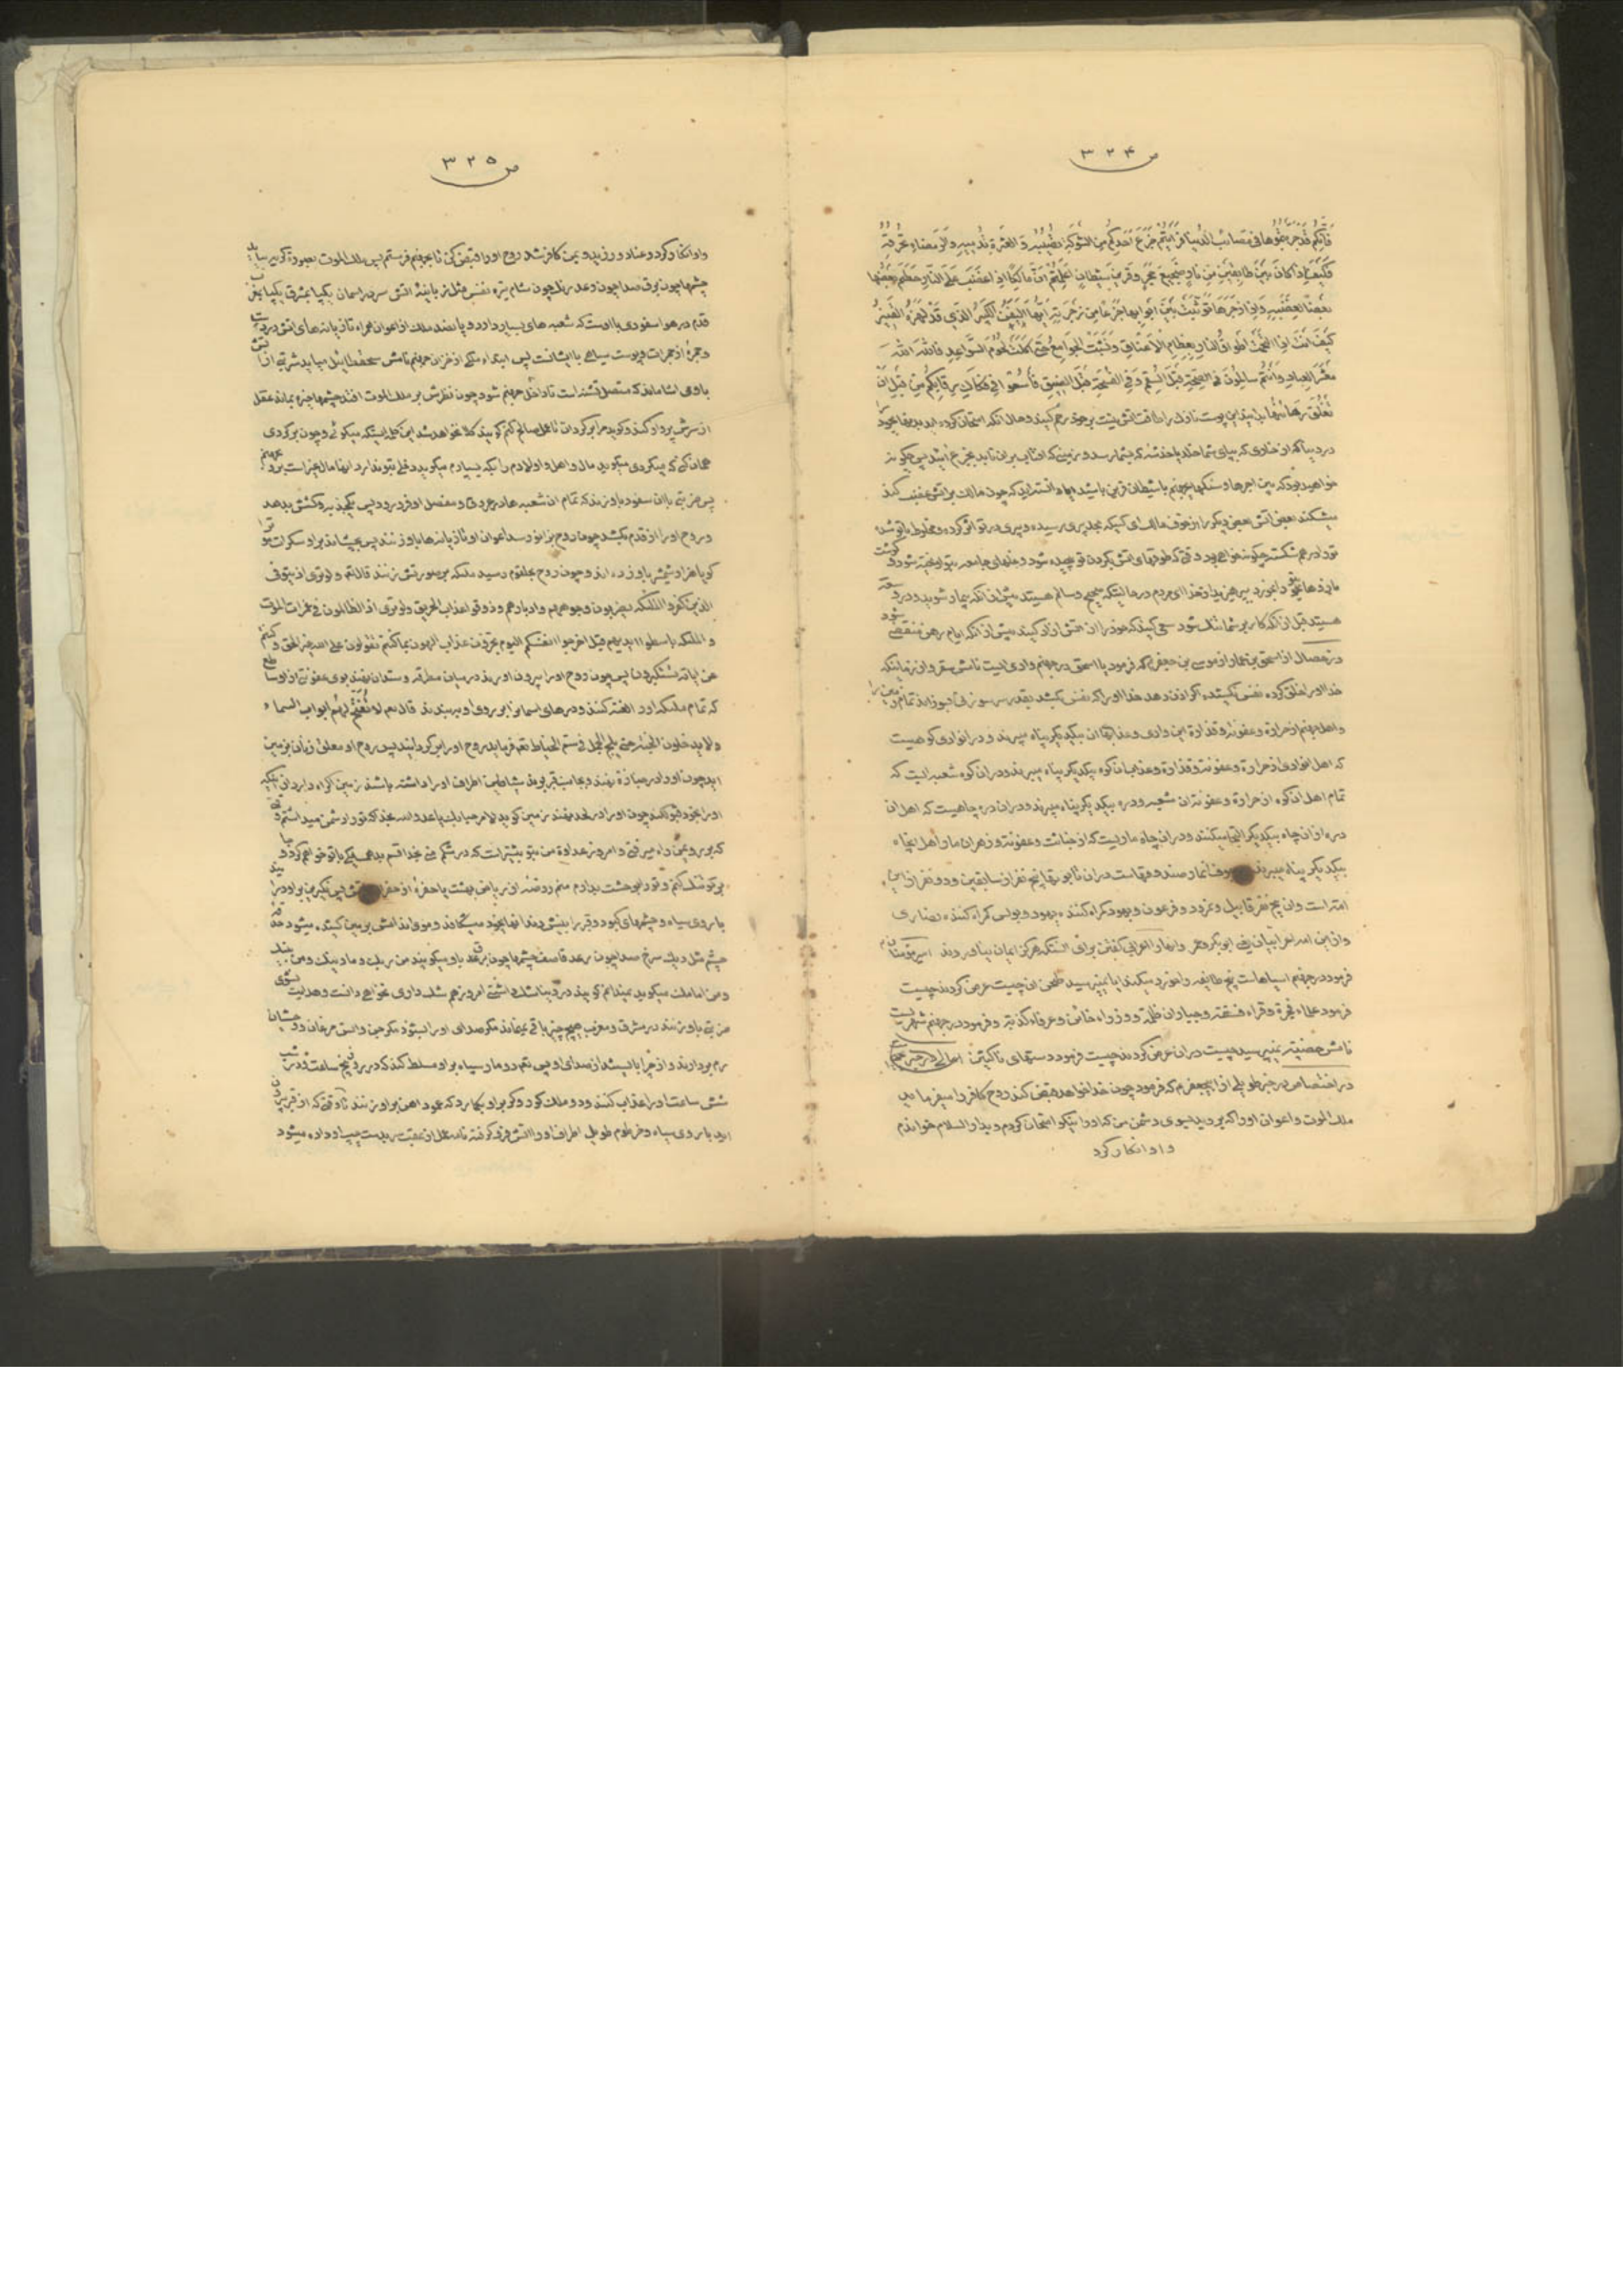 ص ٣٢۴
فانکم قد جربتموها فی مصائب الدنیا فرایتم جزع احدکم من الشوکة تصیبه و العثرة تدمیه و الرمضاء تحرقه
فکیف اذا کان بین طابقین من نار ضجیع حجر و قرین شیطان اعلمتم ان مالکا اذا غضب علی النار حطم بعضها
بعضا لغضبه و اذا زجرها توثبت بین ابوابها جزعا من زجرته ایها الیفن الکبیر الذی قد لهزه القتیر
کیف انت اذا التحمت اطواق النار بعظام الاعناق و نشبت الجوامع حتی اکلت لحوم السواعد فالله الله
معشر العباد و انتم سالمون فی الصحة قبل السقم و فی الفسحة قبل الضیق فاسعوا فی فکاک رقابکم من قبل ان
تغلق رهائنها بدانید این پوست نازک را طاقت اتش نیست بر خود رحم کنید و حال آنکه امتحان کرده اید
در دنیا که از خاری که بپای شما خلد یا خدشه که بشما رسد و زمینی که افتاب بر ان تابد بجزع پس چگونه
خواهید بود که بین اجرها و سنگهای جهنم با شیطان قرین باشید ایا دانسته اید که چون مالک بر اتش غضب کند
میشکند بعض آتش بعض دیگر را از خوف مالک ای کسیکه بحد پیری رسیده و پیری در تو اثر کرده و مخلوط با تو شده
تو را درهم شکسته چگونه خواهی بود وقتی که طوقهای اتش بگردن تو چپیده شود و غلهای جامعه بتو اویخته شود و گوشت
بپرهیزید از خدا ای مردم در حالتیکه صحیح و سالم هستید پیش از انکه بیمار شوید و در وسعه
هستید قبل از انکه کار بر شما تنک شود سعی کنید که خود را از اتش ازاد کنید پیش از انکه ایام رهن منقضی شود
در خصال از اسحق بن عمار از موسی بن جعفر که فرمود یا اسحق در جهنم وادی ایست نامش سقر و از زمانیکه
خدا او را خلق کرده نفس نکشیده اگر اذن دهد خدا او را که نفس بکشد بقدر سر سوزنی بسوزاند تمام
و اهل جهنم از حرارة و عفونة و قذارة این وادی و عذابهای ان بیکدیگر پناه میبرند و در انوادی کوهیست
که اهل انوادی از حرارة و عفونة و قذارة و عذابهای انکوه بیکدیگر پناه میبرند و در ان کوه شعبه ایست که
تمام اهل ان کوه از حرارة و عفونة ان شعبه و دره بیکدیگر پناه میبرند و در ان دره چاهیست که اهل ان
دره از ان چاه بیکدیگر التجا میکنند و در ان چاه ماریست که از خباثت و عفونة و زهر ان مار اهل چاه
بیکدیگر پناه میبرند و در جوف انمار صندوقهاست در ان تابوتها پنج نفر از سابقین و دو نفر از این
امت است و ان پنج نفر قابیل و نمرود و فرعون و یهود گمراه کننده یهود و بولس گمراه کننده نصاری
و از این امه اعرابیان یعنی ابوبکر و عمر
فرمود در جهنم اسیاهاست پنج طایفه را خورد میکند ایا نمیپرسید طحن ان چیست عرض کردند چیست
فرمود علماء فجرة و قراء فسقه و جباران ظلمة و وزراء خائن و عرفاء کذبة و فرمود در جهنم شهریست
نامش حصینه نمیپرسید چیست در ان عرض کردند چیست فرمود دستهای ناکثین
در اختصاص در خبر طویلی از ابیجعفر که فرمود چون خدا خواهد قبض کند روح کافر را میفرماید
ملک الموت و اعوان او را که بروید بسوی دشمن من که او را نیکو امتحان کردم و بدار السلام خواندم
و او انکار کرد
ص ٣٢٥
و او انکار کرد و عناد ورزید و بمن کافر شد روح او را قبض کن تا بجهنم فرستم پس ملک الموت بصورة کریه بیاید
چشمها چون برق صدا چون رعد رنگ چون شام تیره نفس مثل زبانه اتش سر در اسمان یکپا بمشرق یکپا بمغرب
قدم در هوا سفودی با اوست که شعبه های بسیار دارد و پانصد ملک از اعوان همراه تازیانه های اتش در دست
و حجره از جمرات و پوست سیاهی با ایشانست پس ملکی از خزان جهنم نامش سحقطائیل میاید شربتی از اتش
باو می اشاماند که متصل تشنه است تا داخل جهنم شود چون نظرش بر ملک الموت افتد چشمها خیره بماند عقل
از سرش پرواز کند و گوید مرا برگردان تا عمل صالح کنم گویند کلا نخواهد شد این کلمه ایستکه میگوئی و چون برگردی
همان کنی که میکردی میگوید مال و اهل و اولادم را بکه بسپارم میگوید دخلی بتو ندارد
پس ضربتی با ان سفود باو زند که تمام ان شعبه ها در عروق و مفصل او فرو رود پس بیکجذبه روکشش بدهد
و روح او را از قدم بکشد چون روح بزانو رسد اعوان او تازیانه ها باو زنند پس بچشاند بر او سکرات
گویا هزار شمشیر باو زده اند و چون روح بحلقوم رسید ملئکه بر صورتش زنند قال تع و لو تری اذ یتوفی
الذین کفروا الملئکة یضربون وجوههم و ادبارهم و ذوقوا عذاب الحریق و لو تری اذ الظالمون فی غمرات الموت
و الملئکة باسطوا ایدیهم اخرجوا انفسکم الیوم تجزون عذاب الهون بما کنتم تقولون علی الله غیر الحق و کنتم
عن ایاته تستکبرون پس چون روح او را بیرون اورند در میان مطرقه و سندان نهند بوی عفونتی از او ساطع
که تمام ملئکه او را لعنة کنند و درهای اسمانها بروی او ببندند قال تع لا تفتح لهم ابواب السماء
و لا یدخلون الجنة حتی یلج الجمل فی سم الخیاط تع فرماید روح او را برگردانید
اید چون او را در جنازه نهند و بجانب قبر برند شیاطین اطراف او را داشته باشند زمین اکراه دارد از اینکه
او را بخود قبول کند چون او را در لحد نهند زمین گوید لا مرحبا بک یا عدو الله بخدا که تو را دشمن میداشتم وقتی
که بر روی من راه میرفتی و امروز عداوة من بتو بیشتر است که در شکم منی بخدا قسم بدهمسایگی با تو خواهم کرد و جا
بر تو تنگ کنم و تو را بوحشت بیندازم منم روضه از ریاض بهشت یا حفره از حفره اتش پس نکیرین بر او درایند
با روی سیاه و چشمهای کبود و قبر را بنیش دندانها بخود میشکافند و موی ایشان بر زمین کشیده میشود
چشم مثل دیک سرخ صدا چون رعد قاصف چشمها چون برق باو میگویند من ربک و ما دینک و من نبیک
و من امامک میگوید نمیدانم گویند در دنیا شک داشتی امروز هم شک داری نخواهی دانست و هدایت نشوی
ضربتی باو زنند در مشرق و مغرب هیچ چیز باقی نماند مگر صدای او را بشنود مگر جن و انس
رم بردارند و از چرا بایستند از صدای او پس تع دو مار سیاه بر او مسلط کند که در روز پنج ساعت و در شب
شش ساعت او را عذاب کنند و دو ملک کور و کر بر او بگمارد که عمود اهن بر او زنند تا وقتی که از قبر بیرون
اید با روی سیاه و خرطوم طویل اطراف او را اتش فرو گرفته نامه عمل از عقب بدست چپ او داده میشود